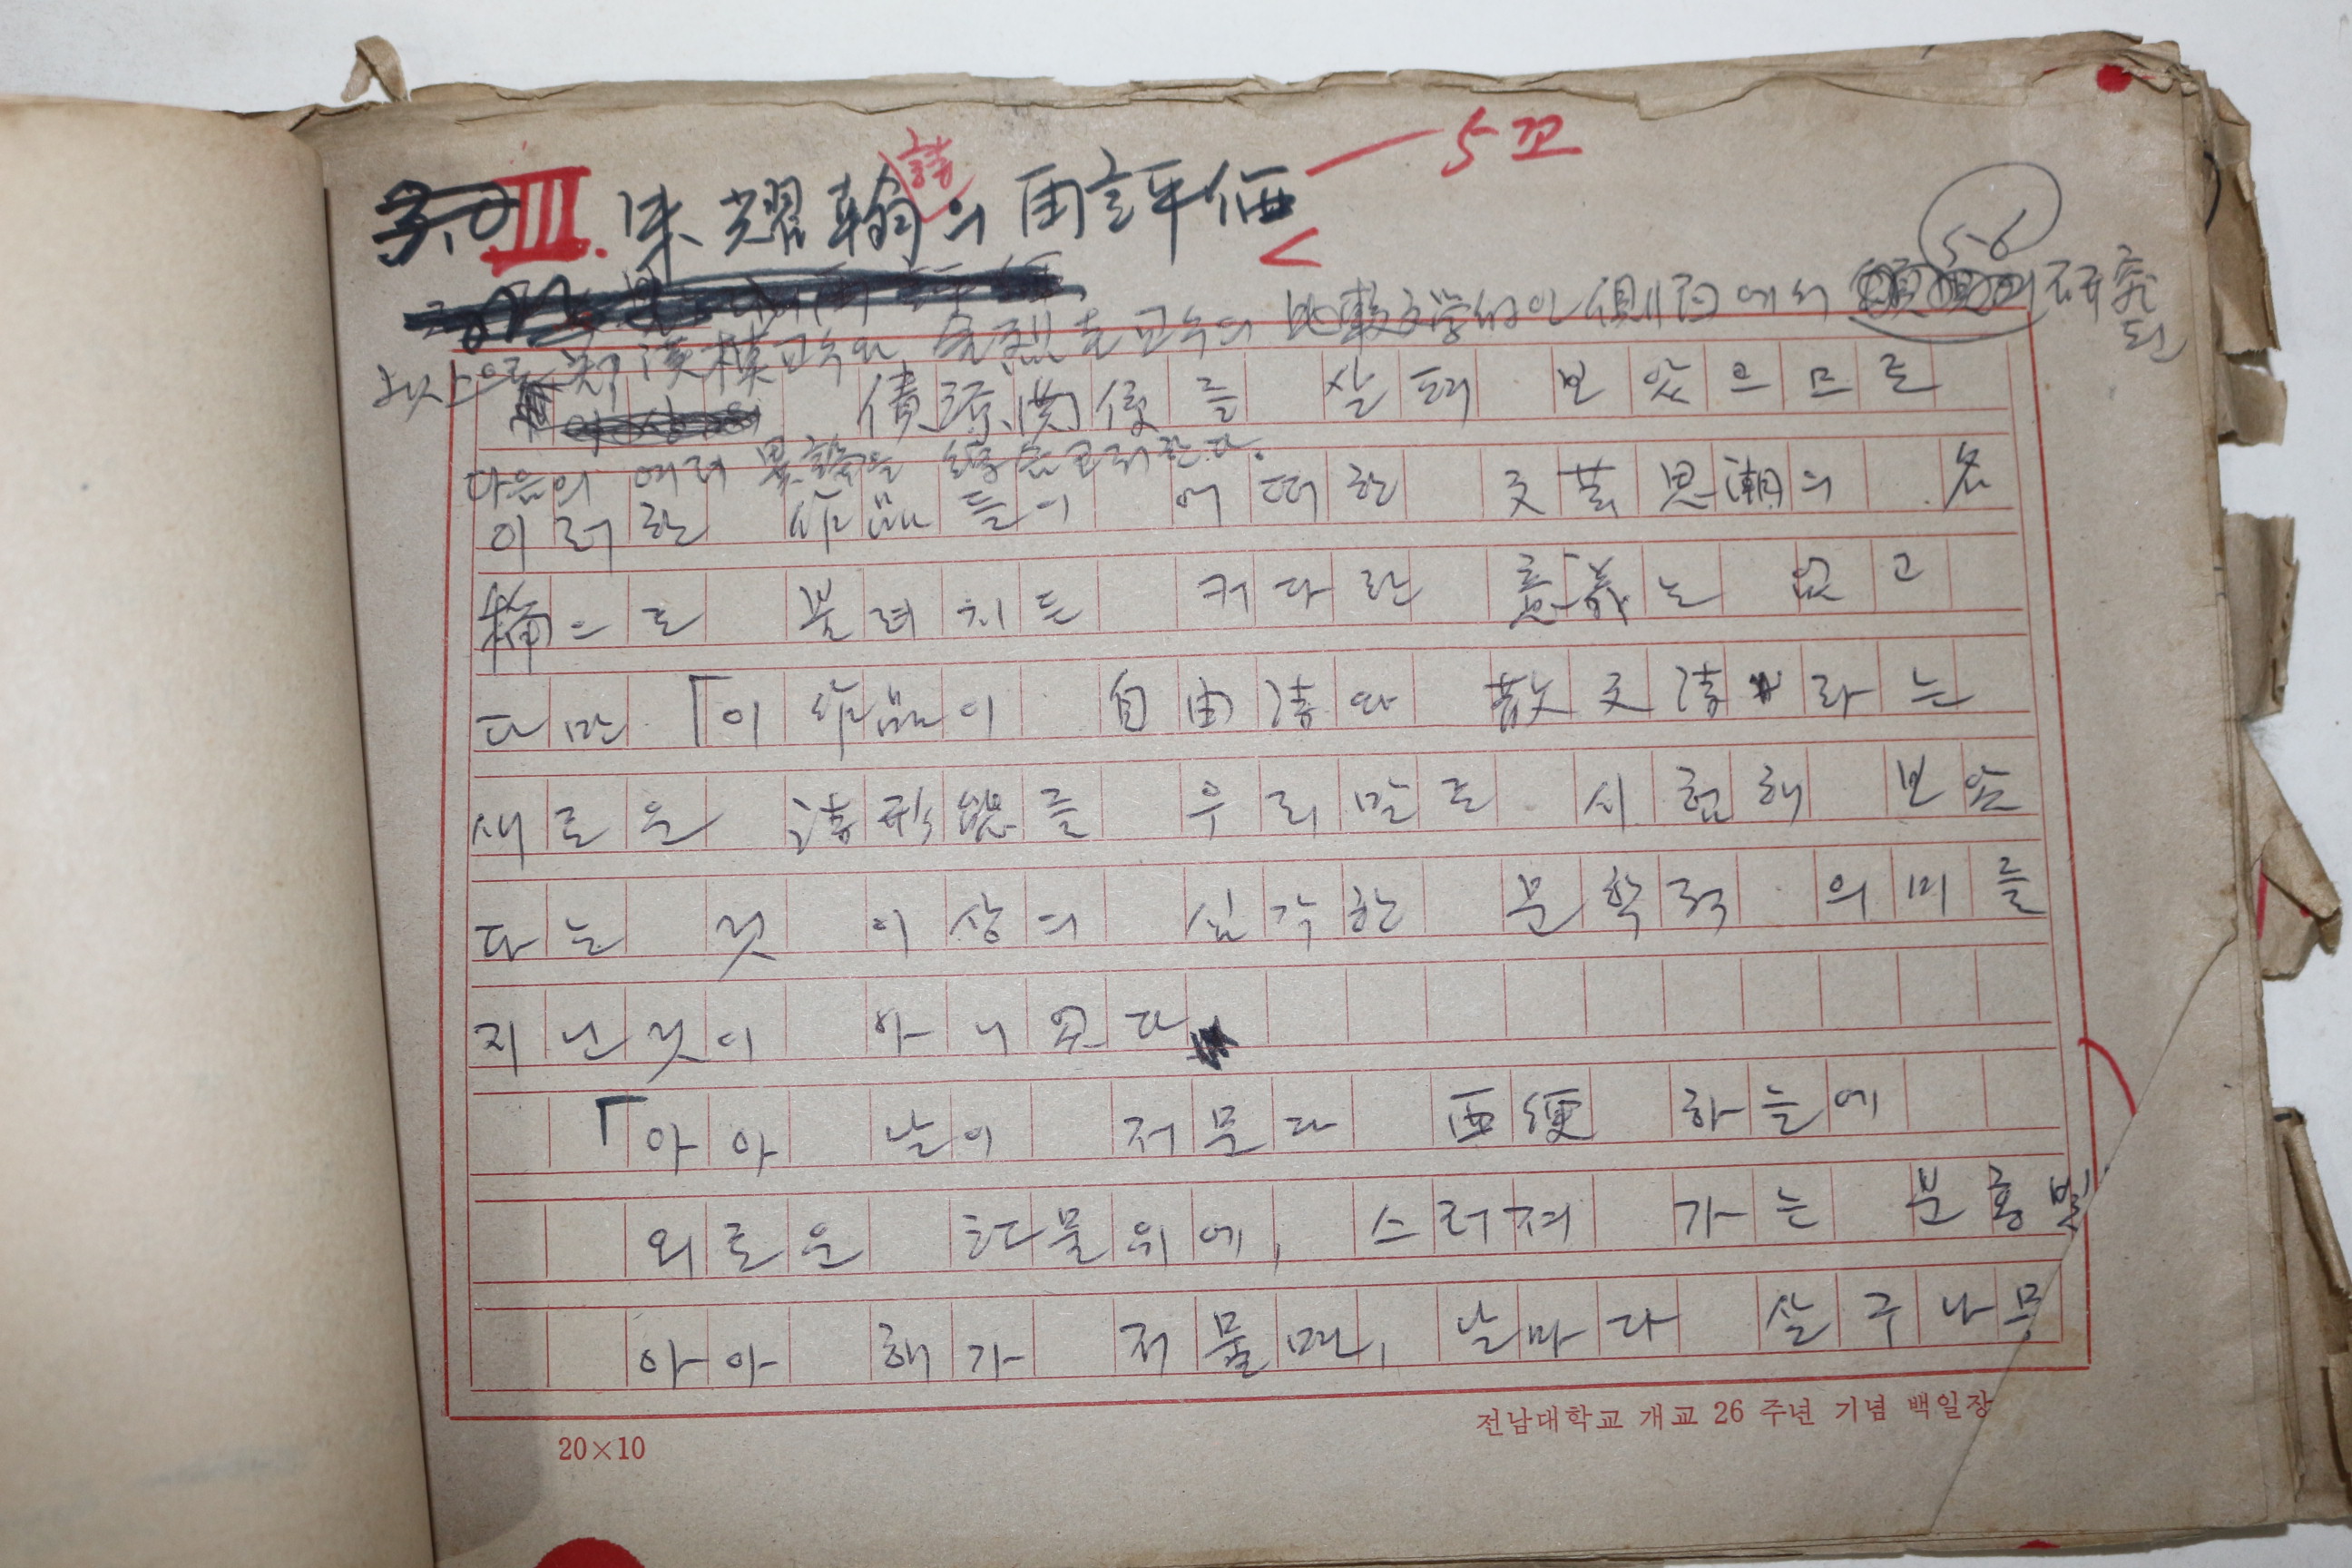 III. 朱耀翰 詩 의 再評価 — 5교
5-6
이상으로 鄭漢模교수와 교수의 比較文学的인 側面에서 研究된
債務関係를 살펴 보았으므로
다음의 여러 異論을 고려한다.
이러한 作品들이 어떠한 文芸思潮의 名
稱으로 불려지든 커다란 意義는 없고
다만 「이 作品이 自由詩와 散文詩라는
새로운 詩形態를 우리말로 시험해 보았
다는 것 이상의 심각한 문학적 의미를
지닌것이 아니었다
「아아 날이 저문다 西便 하늘에
외로운 강물위에, 스러져 가는 분홍빛
아아 해가 저물면, 날마다 살구나무
20×10
전남대학교 개교 26 주년 기념 백일장